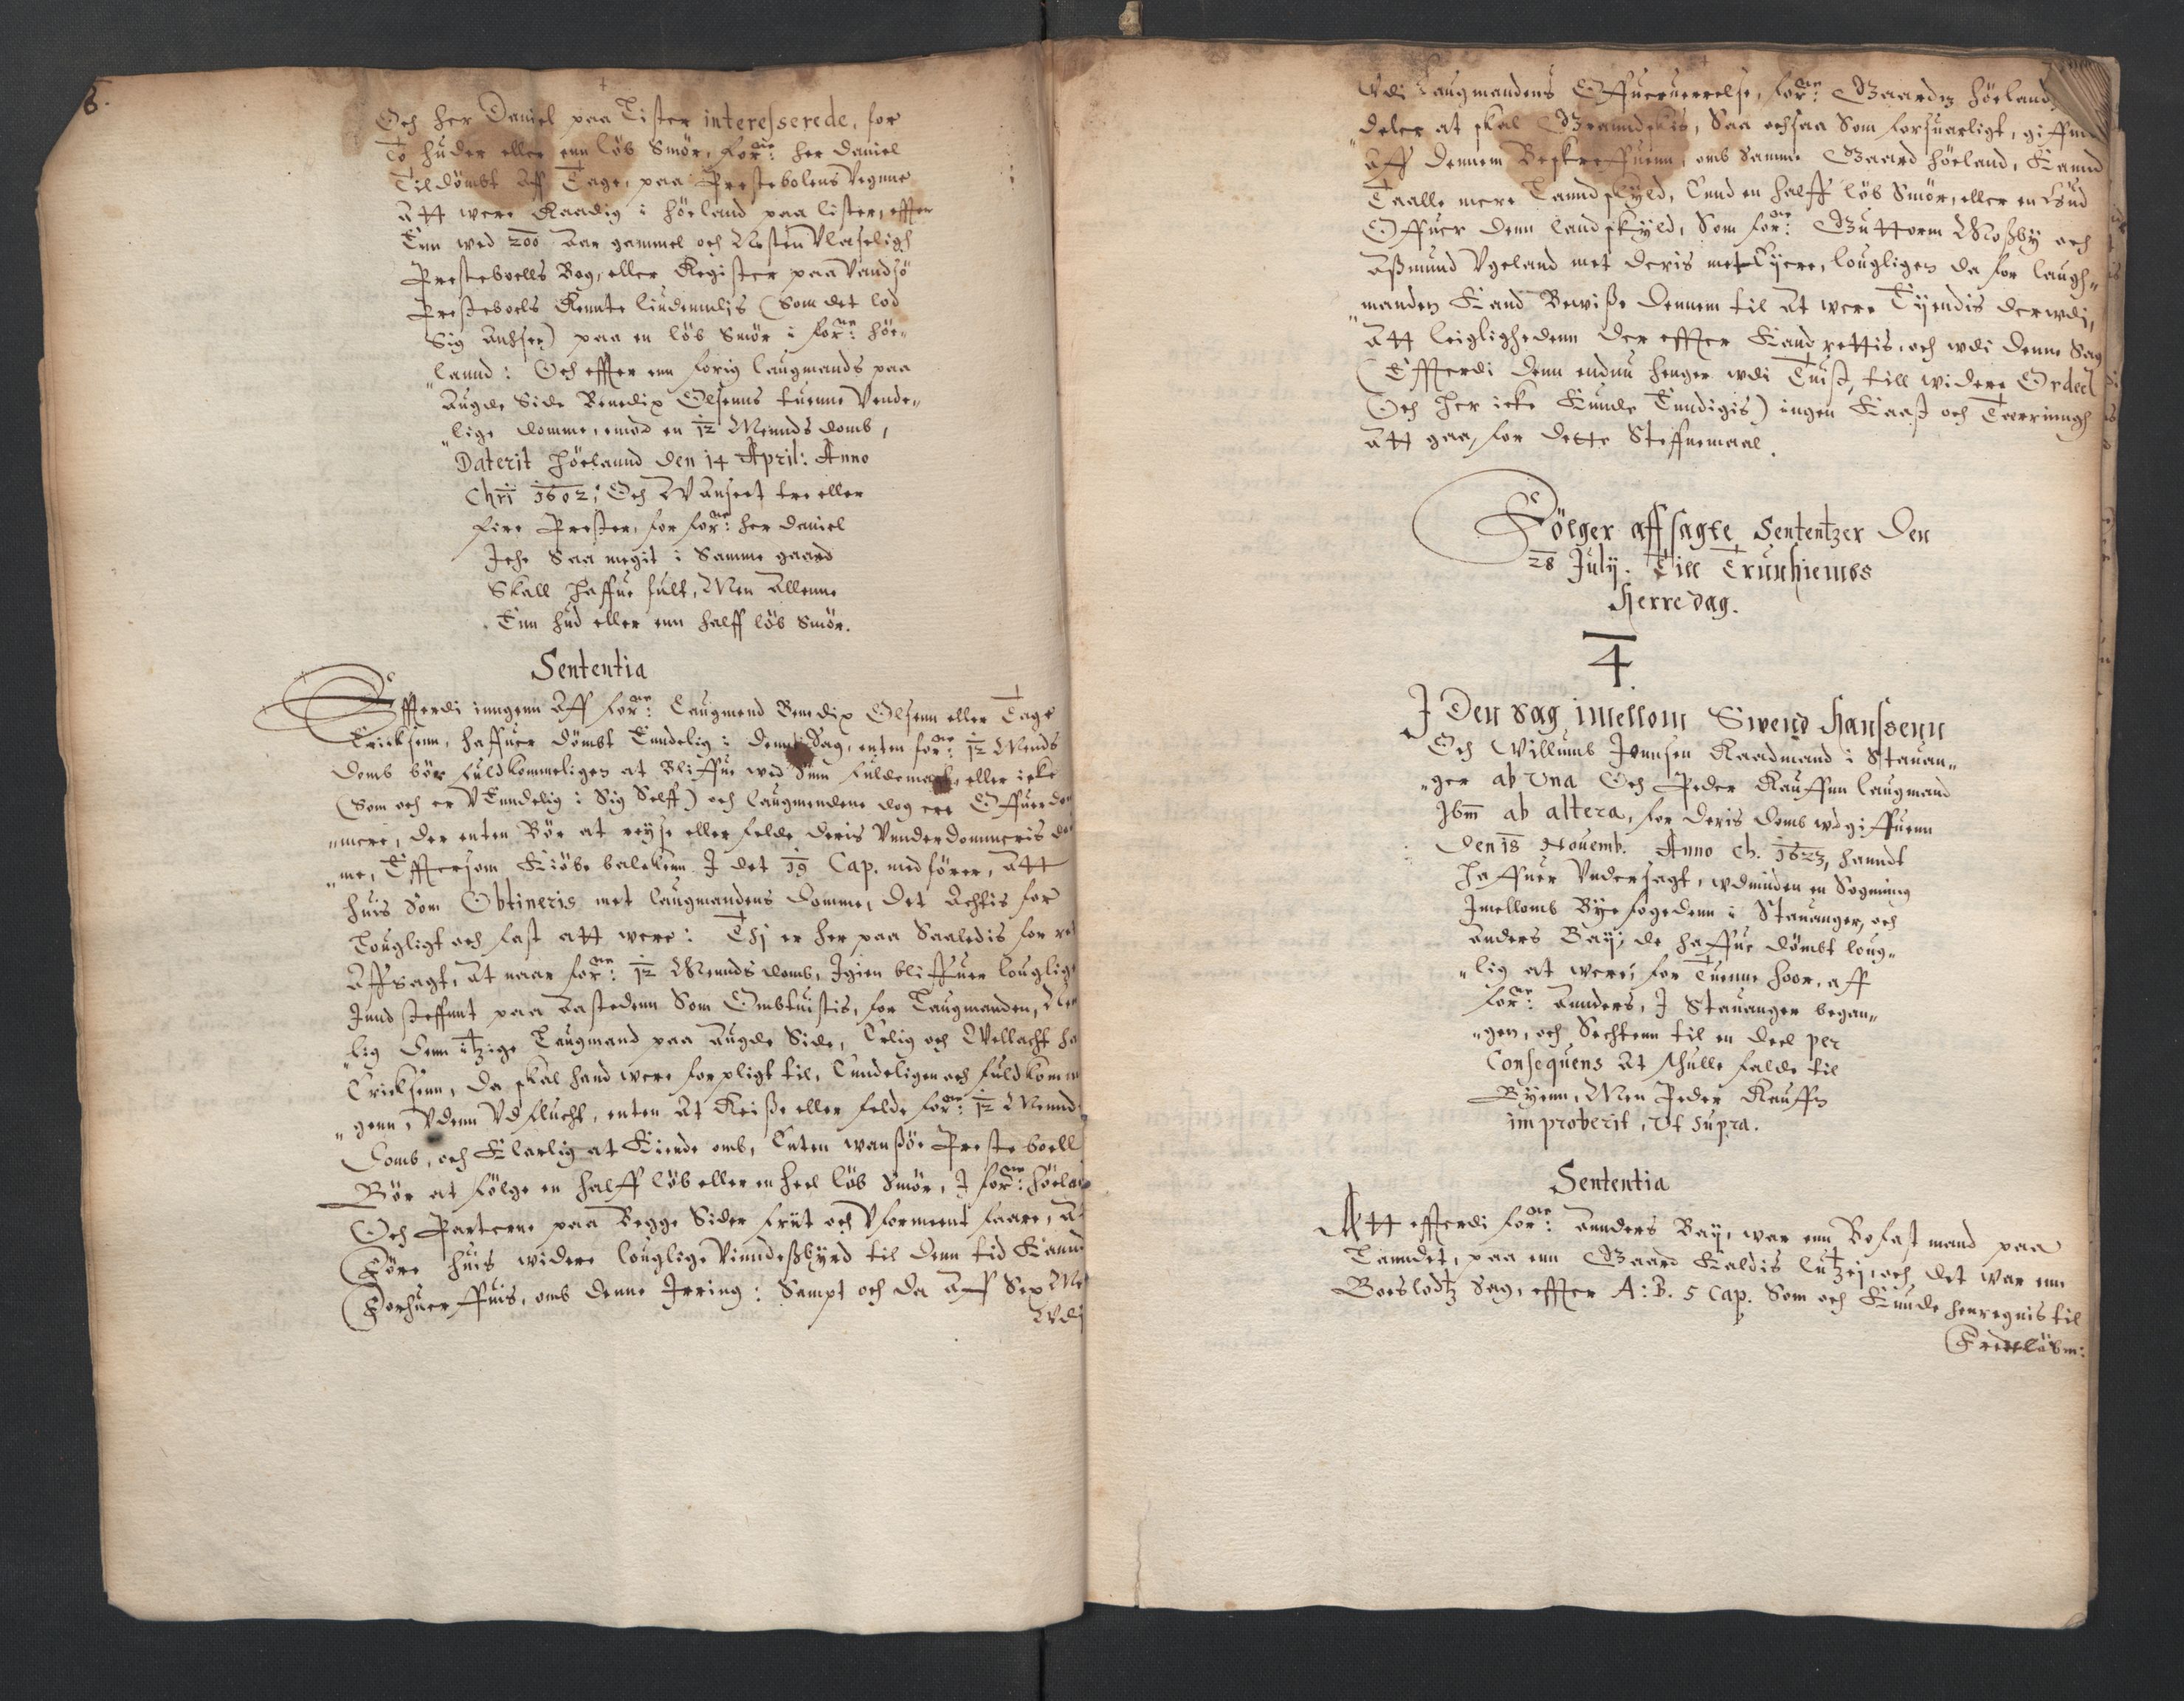 6.
Och her Daniel paa Lister interesserede, for
To huder eller enn löb Smör, forne: her Daniel
Tildömbt Aff Tage, paa Prestebolens Vegnne
Att were Raadig i Höeland paa Lister, effter
Enn wed 200 Aar gammel och Nesten Vlæseligh
Presteboells Bog, eller Register paa Vandsö
Presteboels Rennte liudenndis (Som det lod
Sig Ansee) paa en löb Smör i forne: Höe-
lannd: Och effter enn forig Laugmands paa
Augde Side Benedix Olsenns tuenne Vende-
lige domme, emod en 12 Mennds domb,
Daterit Höelannd den 14 April: Anno
Chri 1602; Och Wanseet tre eller
fire Prester, for forne: her Daniel
Iche Saa megit i Samme gaard
Skall haffue fult, Men Allenne
Enn hud eller enn halff löb Smör.
Sententia
Effterdi inngenn Aff forne: Laugmend Benedix Olsenn eller Tage
Ericksenn, haffuer dömbt Enndelig i denne Sag, enten forne: 12 Mends
domb bör fuldkommeligen at Bliffue wed Sinn fuldemagt, eller icke
(Som och er VEnndelig i Sig Selff) och Laugmendene dog ere Offuer do
mere, der enten Bör at reyse eller felde deris Vnderdommeris do
me, Effttersom Kiöbe balckenn I det 19 Cap. medförer, Att
huis Som Obtineris met Laugmandens domme, det Achtis for
Lougligt och fast att were: Thj er her paa Saaledis for ret
Affsagt, At naar forne: 12 Mennds domb, Igien bliffuer louglig
Inndsteffnnt paa Aastedenn Som Ombtuistis, for Laugmanden,
lig denn itzige Laugmand paa Augde Side, Erlig och Wellacht
Ericksenn, da skal hand were forpligt til, Enndeligen och fuldkomme
genn, Vdenn Vdflucht, enten At Reiße eller felde forne: 12 Mennds
domb, och Klarlig at Kiende omb, Enten Wanßöe Presteboell
Bör at fölge en halff löb eller en heel löb Smör, I forne: Höela
Och Parterne paa Begge Sider frit och Vformeent faare, At
Före huis widere louglige Vinndeßbyrd til denn tid Kannd
Forhuerffuis, omb denne Irring: Sampt och da Aff Sex Me
Wdj
Wdi Laugmandens Offueruerrelse, forne: Gaardz Höeland
deler at skal Grandskis, Saa ochsaa Som forsuarligt, giffue
Aff dennem Beskreffuenn, omb Samme Gaard Höeland, Kannd
Taalle mere Lanndskyld, Ennd en halff löb Smör, eller en hud
Offuer denn landskyld, Som forne: Guttorm Moßby och
Aßmund Vgeland met deris met Eyere, lougligen da for Laugh-
manden Kand Bewiße dennem til At were Eyendis derwdi,
Att leiglighedenn der effter Kand rettis, och wdi denne Sag
(Effterdi denn endnu henger wdi Tuist, till widere Ordeel
Och her icke Kunde Enndigis) ingen Kaast och Tærinngh
Att gaa, for dette Steffnemaal.
Fölger affsagte Sententzer Den
28 July. Till Trunhiembs
Herredag.
4.
I Den sag imellom Swend Hanssenn
Och Willumb Jennsen Raadmand i Stauan-
ger ab Vna Och Peder Kauffnn Laugmand
Ibm ab altera, for deris domb wdgiffuenn
den 18 Nouemb. Anno Ch. 1623, hanndt
haffuer Vndersagt, wdminden en Sognning
Imellomb Byefogedenn i Stauanger, och
Anders Bay, de haffue dömbt loug-
lig at were, for Tuenne hoor, aff
forne: Annders, I Stauanger began-
gen, och Sechtenn til en deel per
Consequens At skulle falde til
Byenn, Men Peder Kauffn
improberit, Vt Supra.
Sententia
Att effterdi forne: Annders Bay, war enn Bofast mand paa
Lanndet, paa enn Gaard Kaldis Lutzej, och det war enn
Boeslodtz Sag, effter A: B. 5 Cap. Som och Kunde henregnis til
Fredlösm: